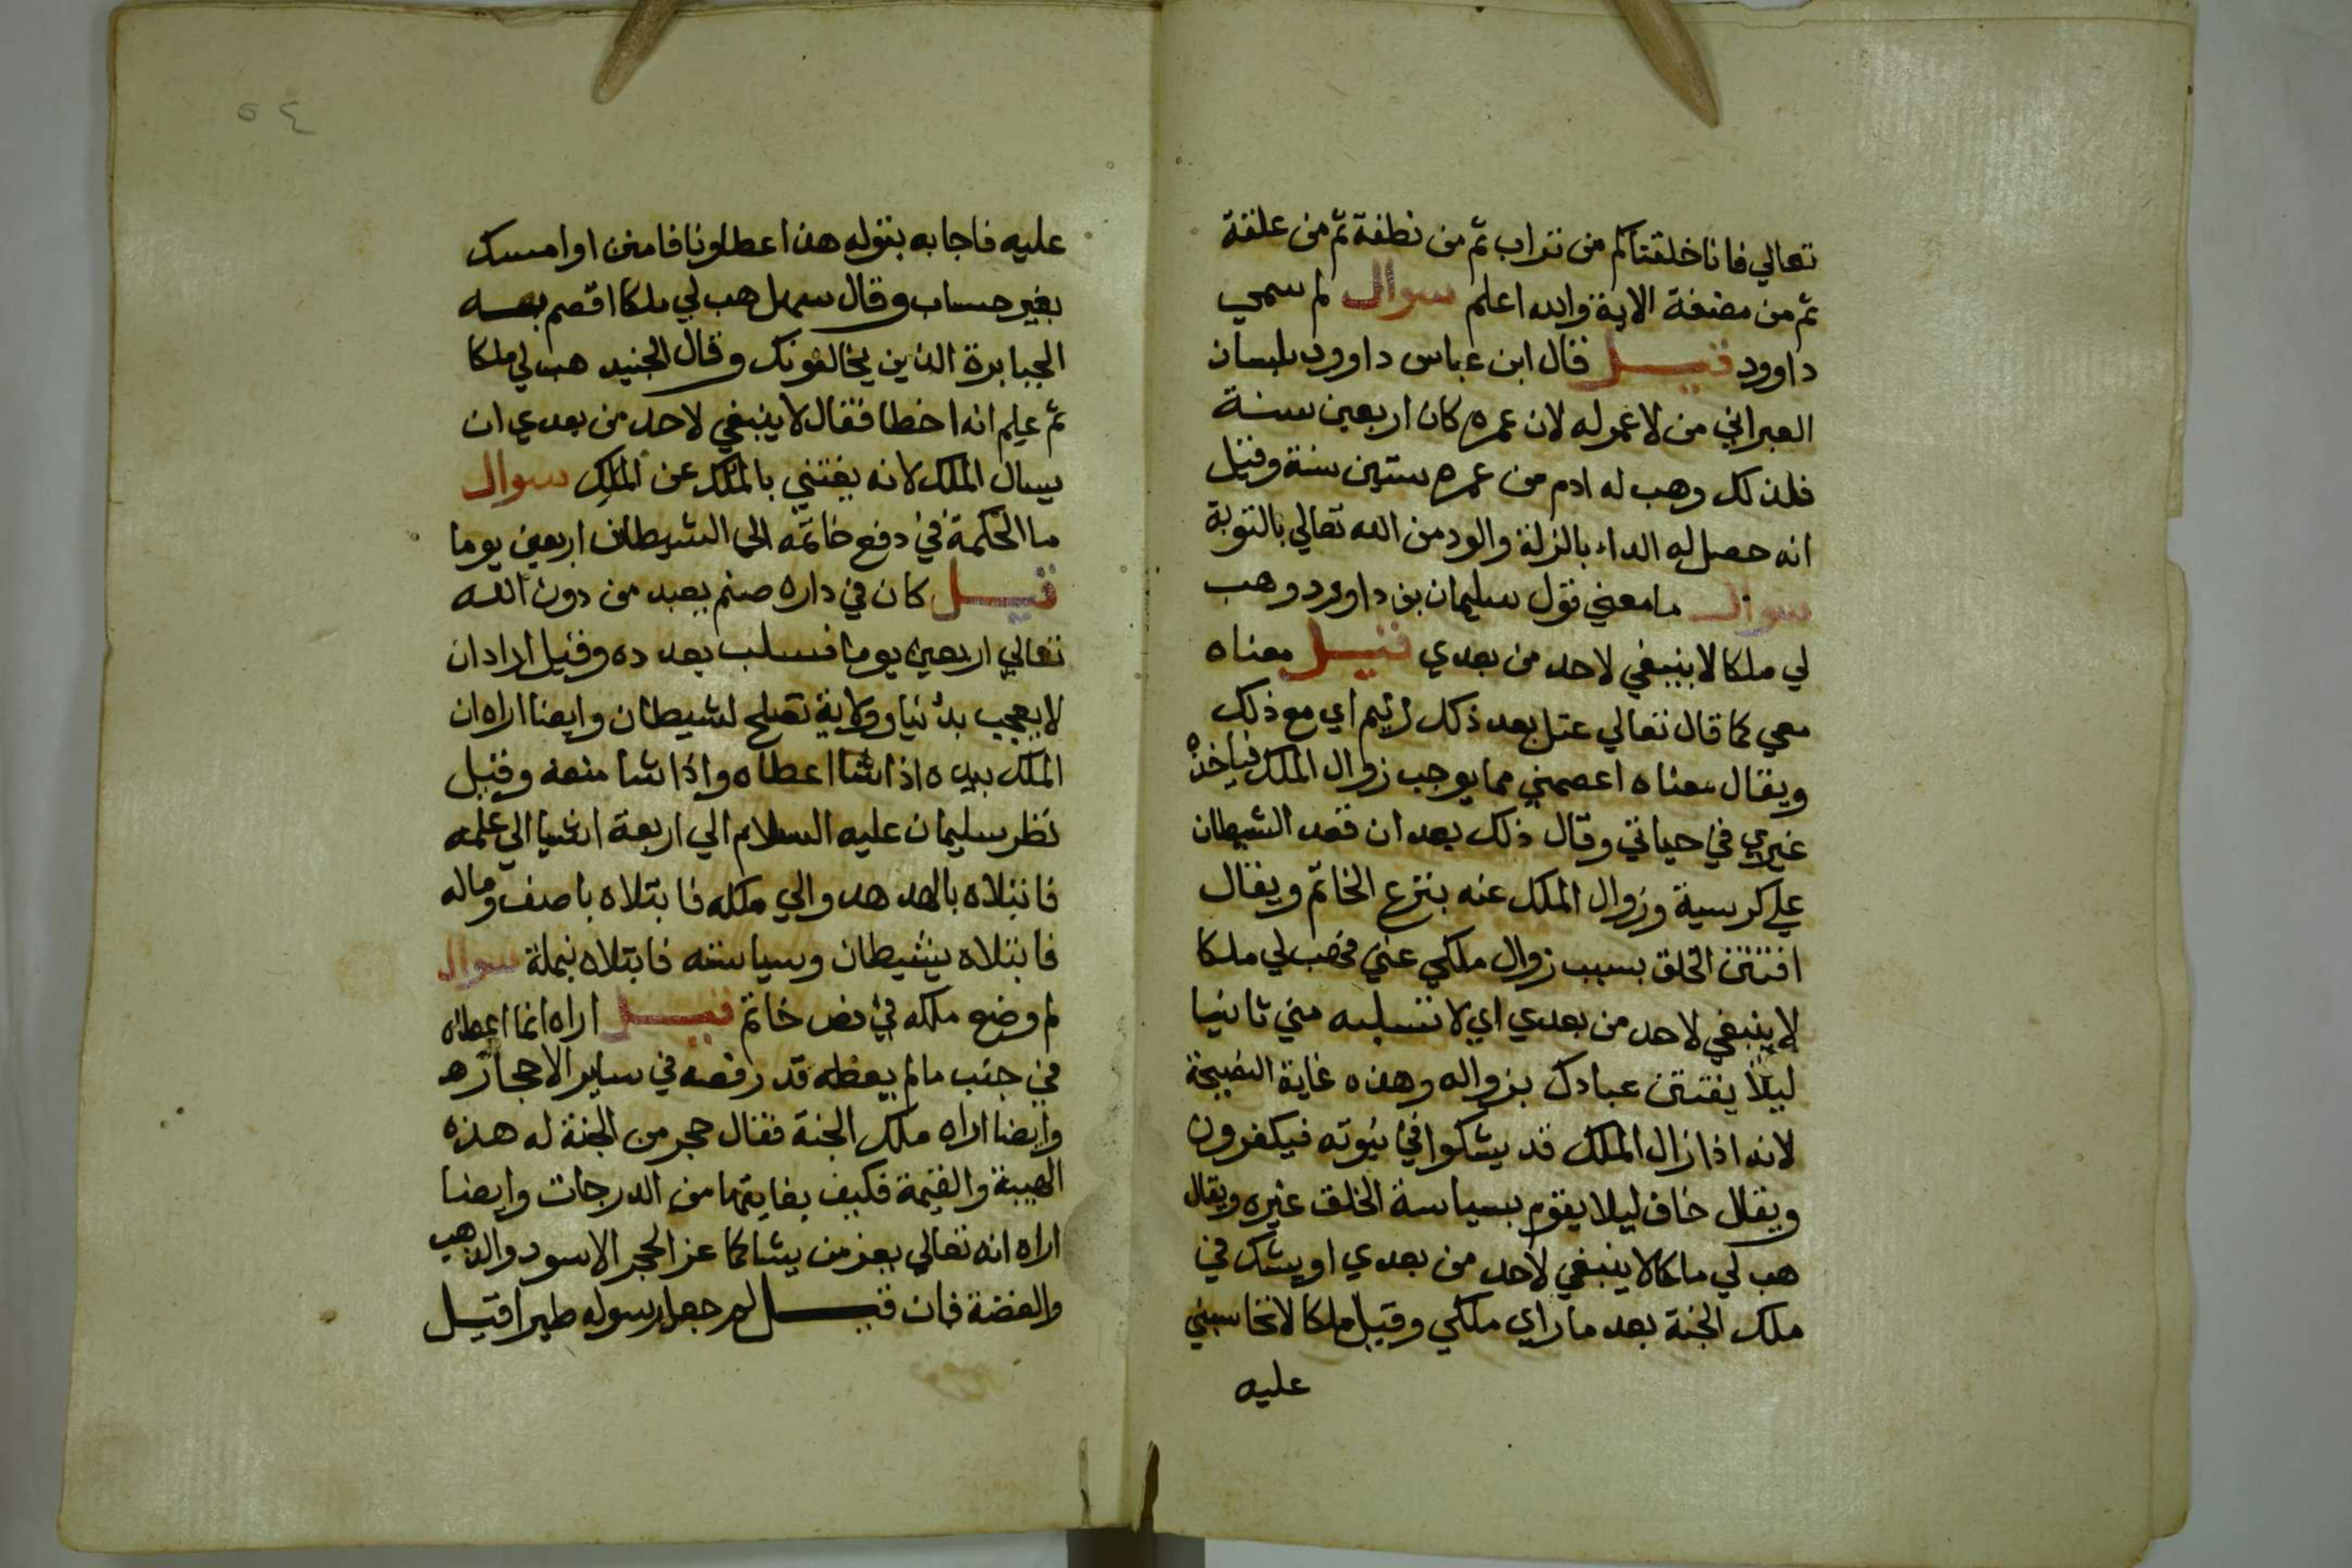 تعالي فانا خلقناكم من تراب ثم من نطفة ثم من علقة
ثم من مضغة الاية والله اعلم سوال لم سمي
داوود قيل قال ابن عباس داوود بلسان
العبراني من لا عمر له لان عمره كان اربعين سنة
فلذلك وهب له ادم من عمره ستين سنة وقيل
انه حصل له الداء بالزلة والود من الله تعالي بالتوبة
سوال ما معني قول سليمان بن داوود وهب
لي ملكا لا ينبغي لاحد من بعدي قيل معناه
معي كما قال تعالي عتل بعد ذلك زنيم اي مع ذلك
ويقال معناه اعصمني مما يوجب زوال الملك فياخذه
غيري في حياتي وقال ذلك بعد ان قعد الشيطان
علي كرسية وزوال الملك عنه بنزع الخاتم ويقال
افتتن الخلق بسبب زوال ملكي عني فهب لي ملكا
لا ينبغي لاحد من بعدي اي لا تسلبه مني ثانيا
ليلا يفتتن عبادك بزواله وهذه غاية النصيحة
لانه اذا زال الملك قد يشكوا في نبوته فيكفرون
ويقال خاف ليلا يقوم بسياسة الخلق غيره ويقال
هب لي ملكا لا ينبغي لاحد من بعدي او يشك في
ملك الجنة بعد ما راي ملكي وقيل ملكا لا تحاسبني
عليه
٥٤
عليه فاجابه بقوله هذا عطاونا فامنن او امسك
بغير حساب وقال سهل هب لي ملكا اقصم به
الجبابرة الذين يخالفونك وقال الجنيد هب لي ملكا
ثم علم انه اخطا فقال لا ينبغي لاحد من بعدي ان
يسال الملك لانه يفتني بالملك عن الملك سوال
ما الحكمة في دفع خاتمه الى الشيطان اربعين يوما
قيل كان في داره صنم يعبد من دون الله
تعالي اربعين يوما فسلب بعدده وقيل اراد ان
لا يعجب بدنيا وولاية تصلح لشيطان وايضا اراه ان
الملك بيده اذا شا اعطاه واذا شا منعه وقيل
نظر سليمان عليه السلام الي اربعة اشيا الي علمه
فابتلاه بالهدهد والي ملكه فابتلاه باصف وماله
فابتلاه بشيطان وسياسته فابتلاه بنملة سوال
لم وضع ملكه في فص خاتم قيل اراه انما اعطاه
في جنب ما لم يعطه قد رفعه في ساير الاحجار
وايضا اراه ملك الجنة فقال حجر من الجنة له هذه
الهيبة والقيمة فكيف بغايتها من الدرجات وايضا
اراه انه تعالي يعز من يشا كما عز الحجر الاسود والذهب
والفضة فان قيل لم جعل رسوله طيرا قيل